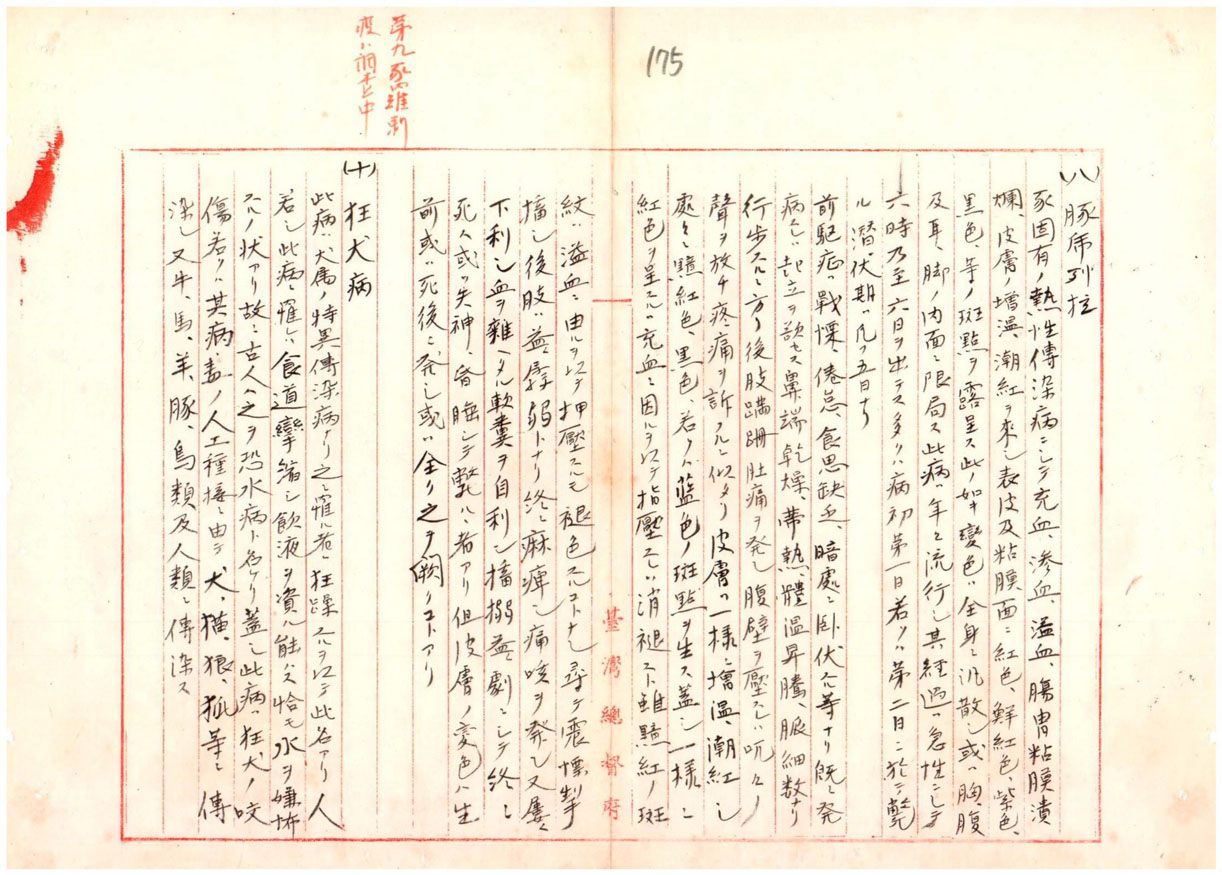 175
第九豚羅斯
疫ハ前葉中
(八)豚虎列拉
豕固有ノ熱性傳染病ニシテ充血、滲血、溢血、腸胃粘膜潰
爛、皮膚ノ增温、潮紅ヲ来シ表皮及粘膜面ニ紅色、鮮紅色、紫色、
黒色等ノ斑點ヲ露呈ス此ノ如キ變色ハ全身ニ汎散シ或ハ胸腹
及耳、脚ノ内面ニ限局ス此病ハ年々流行シ其経過ハ急性ニシテ
六時乃至六日ヲ出テス多クハ病初第一日若クハ第二日ニ於テ斃
ル潜伏期ハ凡ソ五日ナリ
前駆症ハ戰慄、倦怠、食思缺乏、暗處ニ臥伏スル等ナリ既ニ発
病スレハ起立ヲ欲セス鼻端乾燥、帯熱、體温昇騰、脈細数ナリ
行歩スルニ方リ後肢蹣跚肚痛ヲ発シ腹壁ヲ壓スレハ呻々ノ
聲ヲ放チ疼痛ヲ訴フルニ似タリ皮膚ハ一様ニ増温、潮紅シ
處々ニ黯紅色、黒色、若クハ藍色ノ斑點ヲ生ス蓋シ一様ニ
紅色ヲ呈スルハ充血ニ因ルヲ以テ指壓スレハ消褪スト雖黯紅ノ斑
紋ハ溢血ニ由ルヲ以テ押壓スルモ褪色スルコトナシ尋テ震慄掣
搐シ後肢ハ益々孱弱トナリ終ニ麻痺シ痛咳ヲ発シ又屢々
下利シ血ヲ雜ヘタル軟糞ヲ自利シ搐搦益々劇ニシテ終ニ
死ス或ハ失神、昏睡シテ斃ルヽ者アリ但皮膚ノ変色ハ生
前或ハ死後ニ発シ或ハ全ク之ヲ闕クコトアリ
臺灣總督府
(十)狂犬病
此病ハ犬属ノ特異傳染病ナリ之ニ罹ル者ハ狂躁スルヲ以テ此名アリ人
若シ此病ニ罹レハ食道攣縮シ飲液ヲ資ル能ハス恰モ水ヲ嫌怖
スルノ状アリ故ニ古人ハ之ヲ恐水病ト名ケリ蓋シ此病ハ狂犬ノ咬
傷若クハ其病毒ノ人工種接ニ由テ犬、猫、狼、狐等ニ傳
染シ又牛、馬、羊、豚、鳥類及人類ニ傳染ス